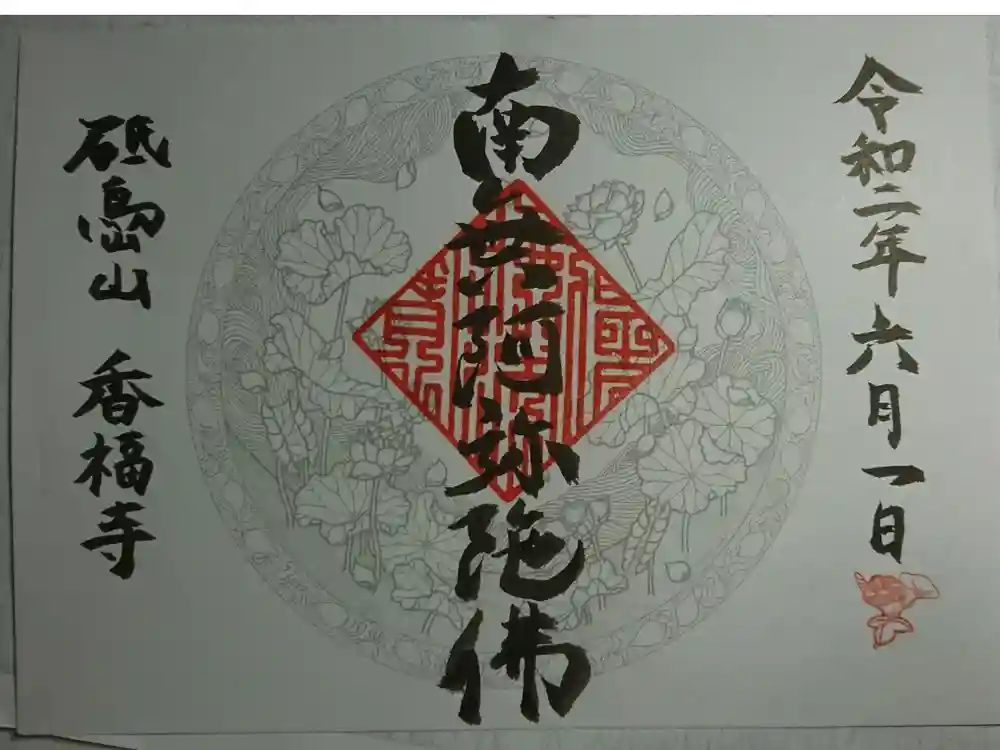 令和二年 六月一日
南無阿弥陀佛
砥嶌山 香福寺